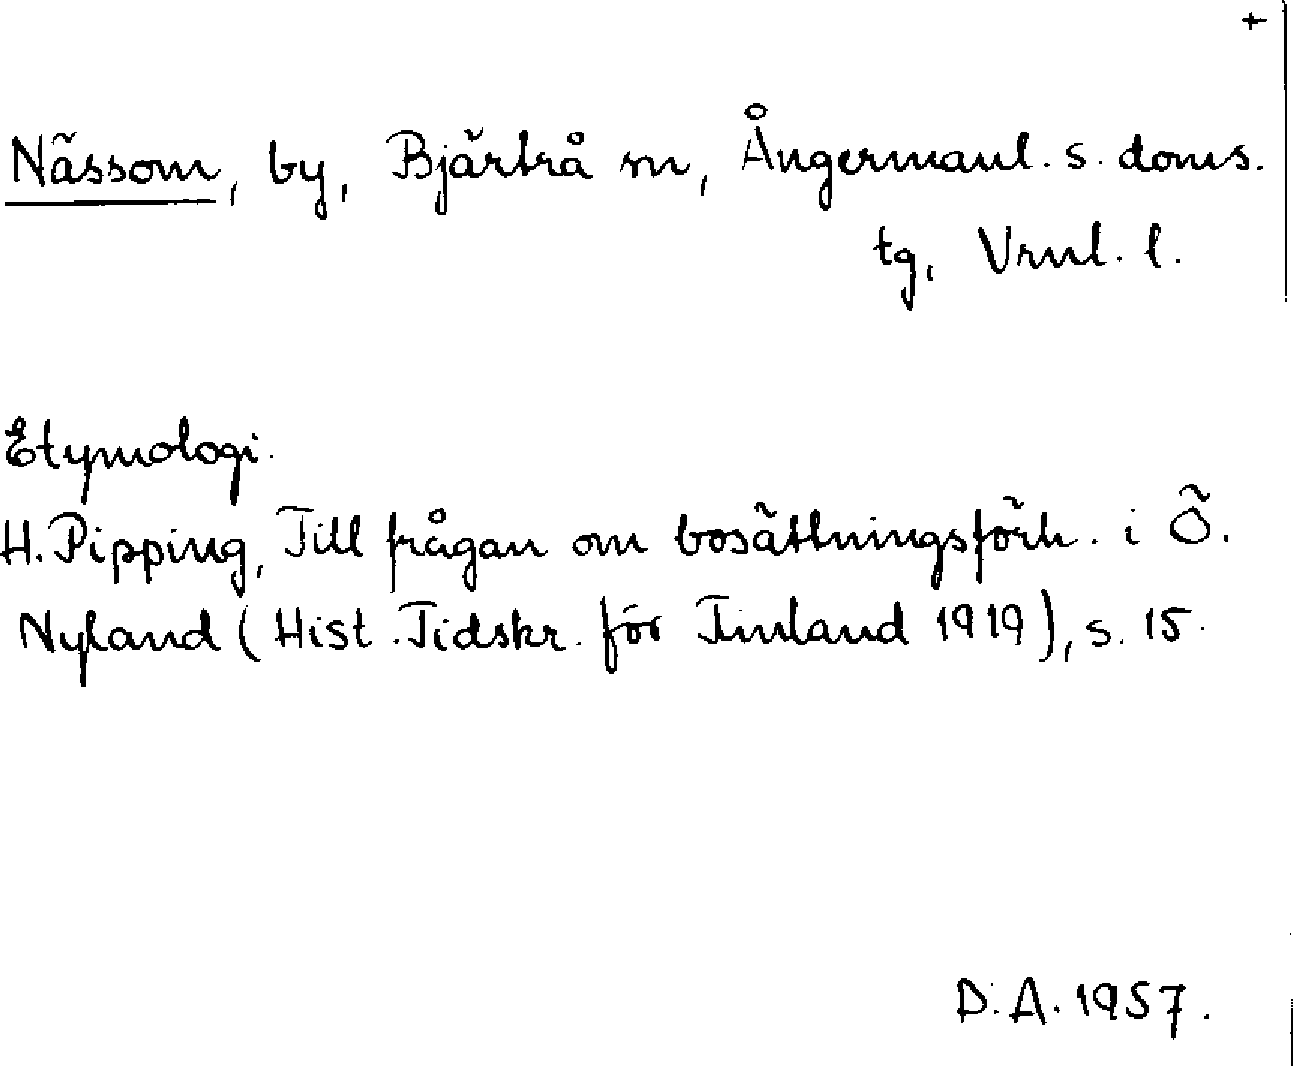 +
Nässom, by, Bjärtrå sn, Ångermanl. s. doms.
tg, Vrnl. l.
Etymologi.
H. Pipping, Till frågan om bosättningsförh. i Ö.
Nyland (Hist. Tidskr. för Finland 1919), s. 15.
D. A. 1957.